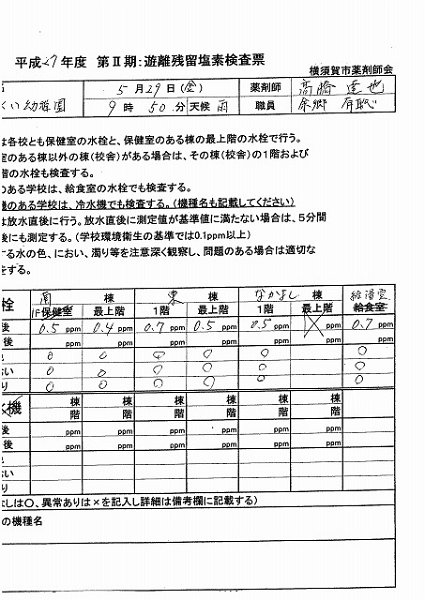 平成27年度 第Ⅱ期:遊離残留塩素検査票
横須賀市薬剤師会
5月29日(金) 薬剤師
くい幼稚園 9時50分 天候 雨 職員
は各校とも保健室の水栓と、保健室のある棟の最上階の水栓で行う。
室のある棟以外の棟(校舎)がある場合は、その棟(校舎)の1階および
階の水栓も検査する。
のある学校は、給食室の水栓でも検査する。
機のある学校は、冷水機でも検査する。(機種名も記載してください)
は放水直後に行う。放水直後に測定値が基準値に満たない場合は、5分間
後にも測定する。(学校環境衛生の基準では0.1ppm以上)
する水の色、におい、濁り等を注意深く観察し、問題のある場合は適切な
をする。
栓 南 棟 東 棟 なかよし 棟 給湯室
1F保健室 最上階 1階 最上階 1階 最上階 給食室
後 0.5 ppm 0.4 ppm 0.7 ppm 0.5 ppm 0.5 ppm ppm 0.7 ppm
後 ppm ppm ppm ppm ppm ppm ppm
○ ○ ○ ○ ○ ○
い ○ ○ ○ ○ ○ ○
り ○ ○ ○ ○ ○ ○
機 棟 棟 棟 棟 棟 棟
階 階 階 階 階 階
後 ppm ppm ppm ppm ppm ppm
後 ppm ppm ppm ppm ppm ppm
い
り
なしは○、異常ありは×を記入し詳細は備考欄に記載する)
の機種名